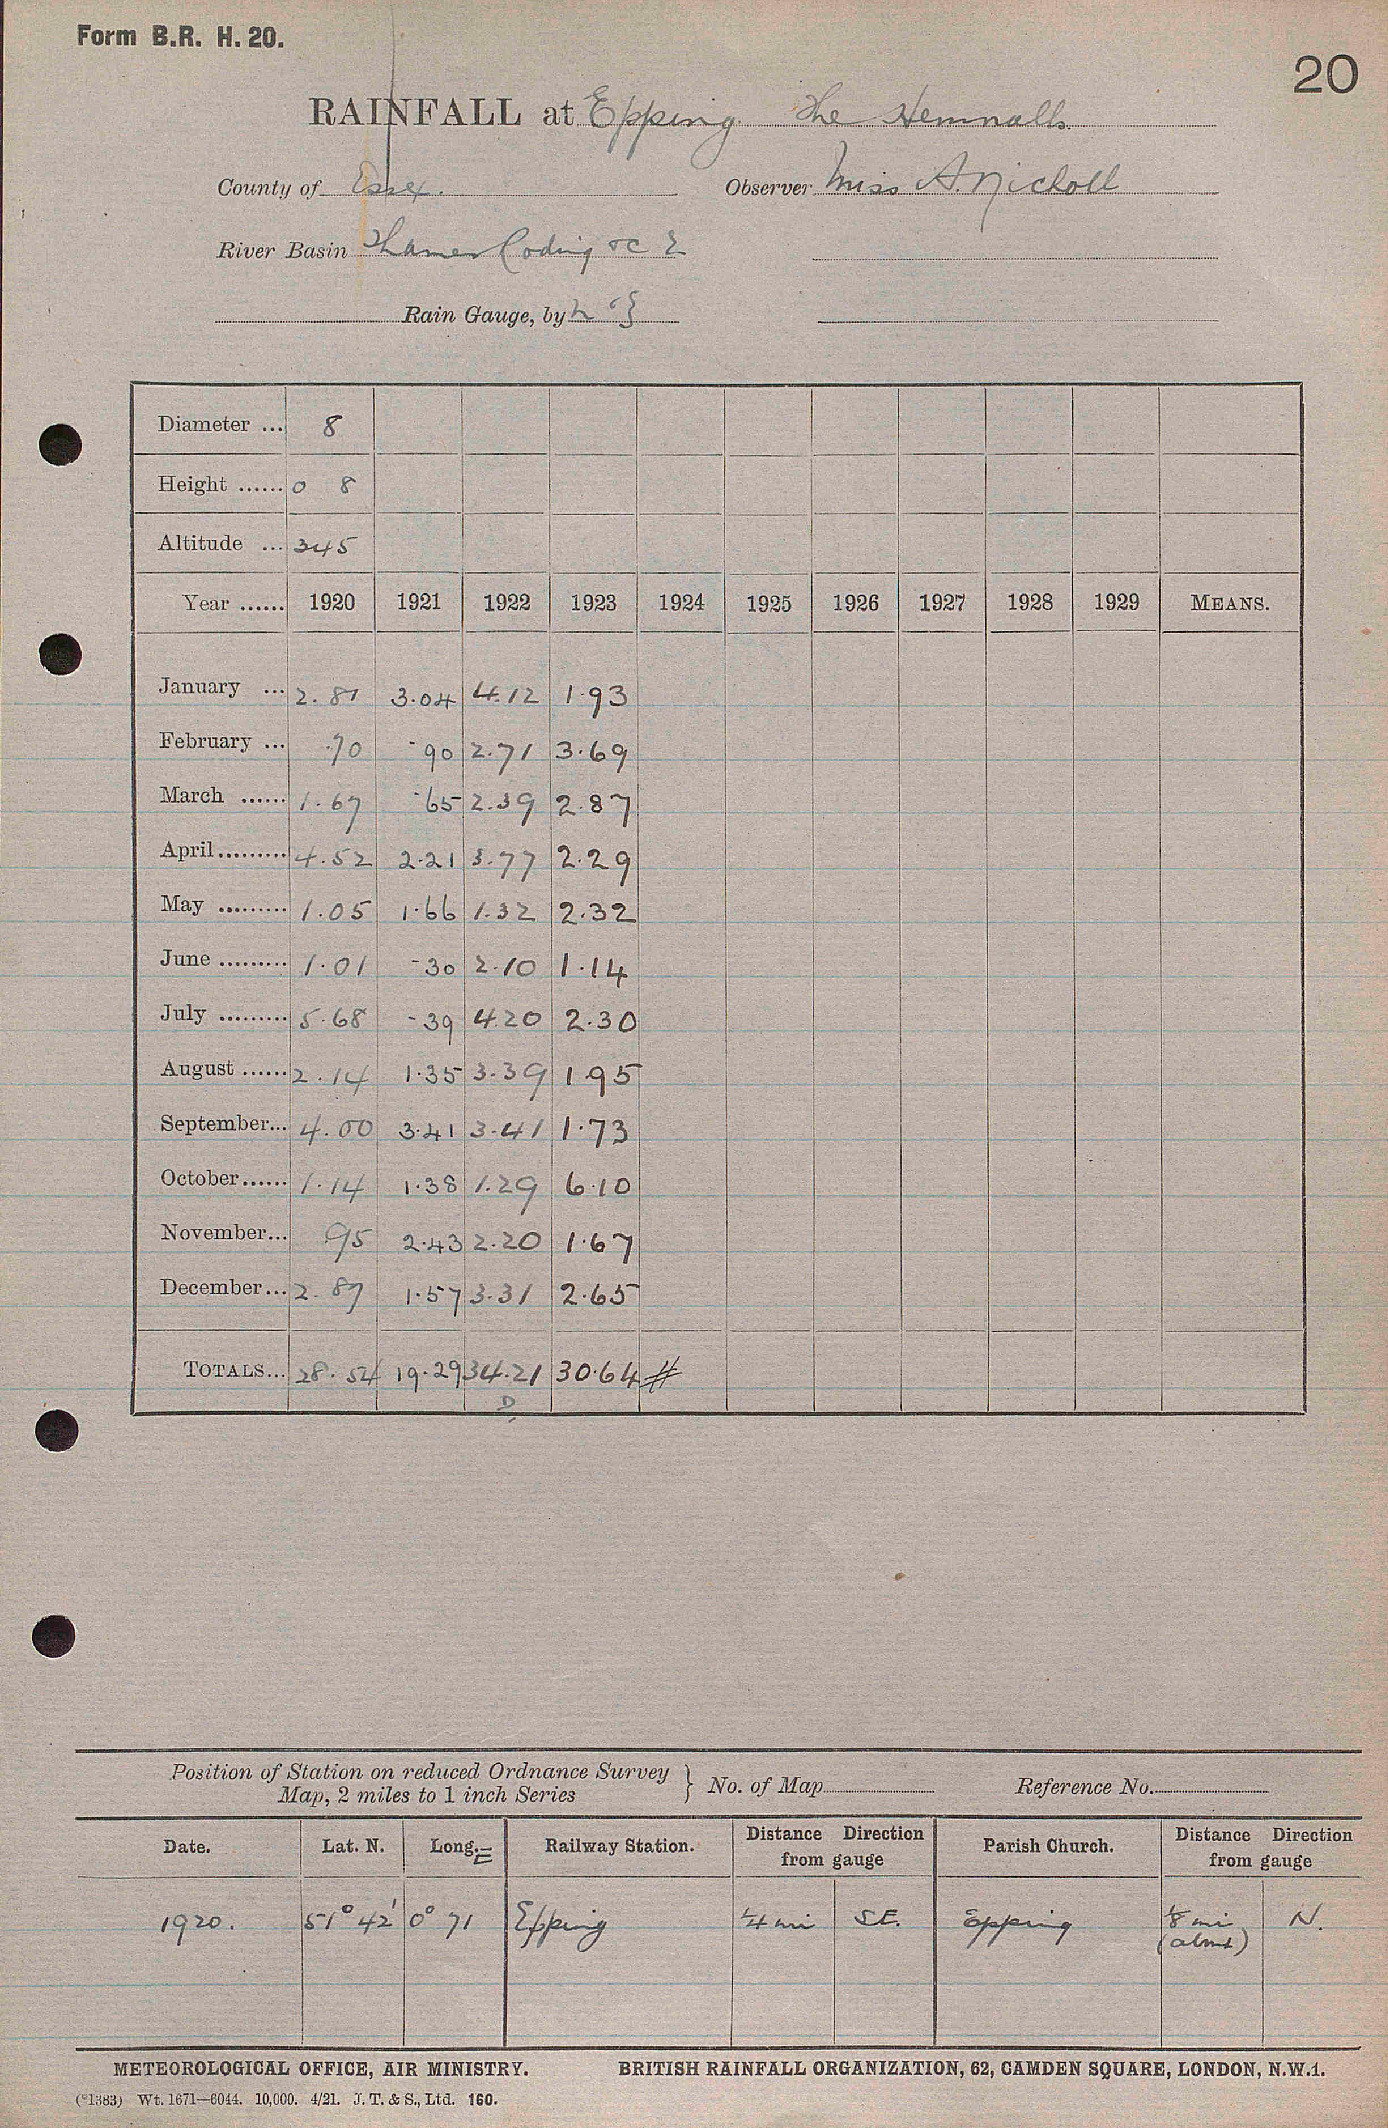 Form B.R. H. 20.
20
RAINFALL at Epping The Hemnalls
County of Essex. Observer Miss A. Nicholl
River Basin Thames Roding &c E
Rain Gauge, by
Diameter ... 8
Height ...... 0 8
Altitude ... 345
Year ...... 1920 1921 1922 1923 1924 1925 1926 1927 1928 1929 MEANS.
January ... 2.81 3.04 4.12 1.93
February ... .70 .90 2.71 3.69
March ...... 1.67 .65 2.39 2.87
April......... 4.52 2.21 3.77 2.29
May ......... 1.05 1.66 1.32 2.32
June ......... 1.01 .30 2.10 1.14
July ......... 5.68 .39 4.20 2.30
August ...... 2.14 1.35 3.39 1.95
September... 4.00 3.41 3.41 1.73
October...... 1.14 1.38 1.29 6.10
November... .95 2.43 2.20 1.67
December... 2.87 1.57 3.31 2.65
TOTALS... 28.54 19.29 34.21 30.64 #
D
Position of Station on reduced Ordnance Survey
Map, 2 miles to 1 inch Series } No. of Map Reference No.
Date. Lat. N. Long. E Railway Station. Distance Direction from gauge Parish Church. Distance Direction from gauge
1920. 51° 42' 0° 7' Epping 1/4 mi SE. Epping 1/8 mi N.
(about)
METEOROLOGICAL OFFICE, AIR MINISTRY. BRITISH RAINFALL ORGANIZATION, 62, CAMDEN SQUARE, LONDON, N.W.1.
(*1383) Wt. 1671—6044. 10,000. 4/21. J. T. & S., Ltd. 160.